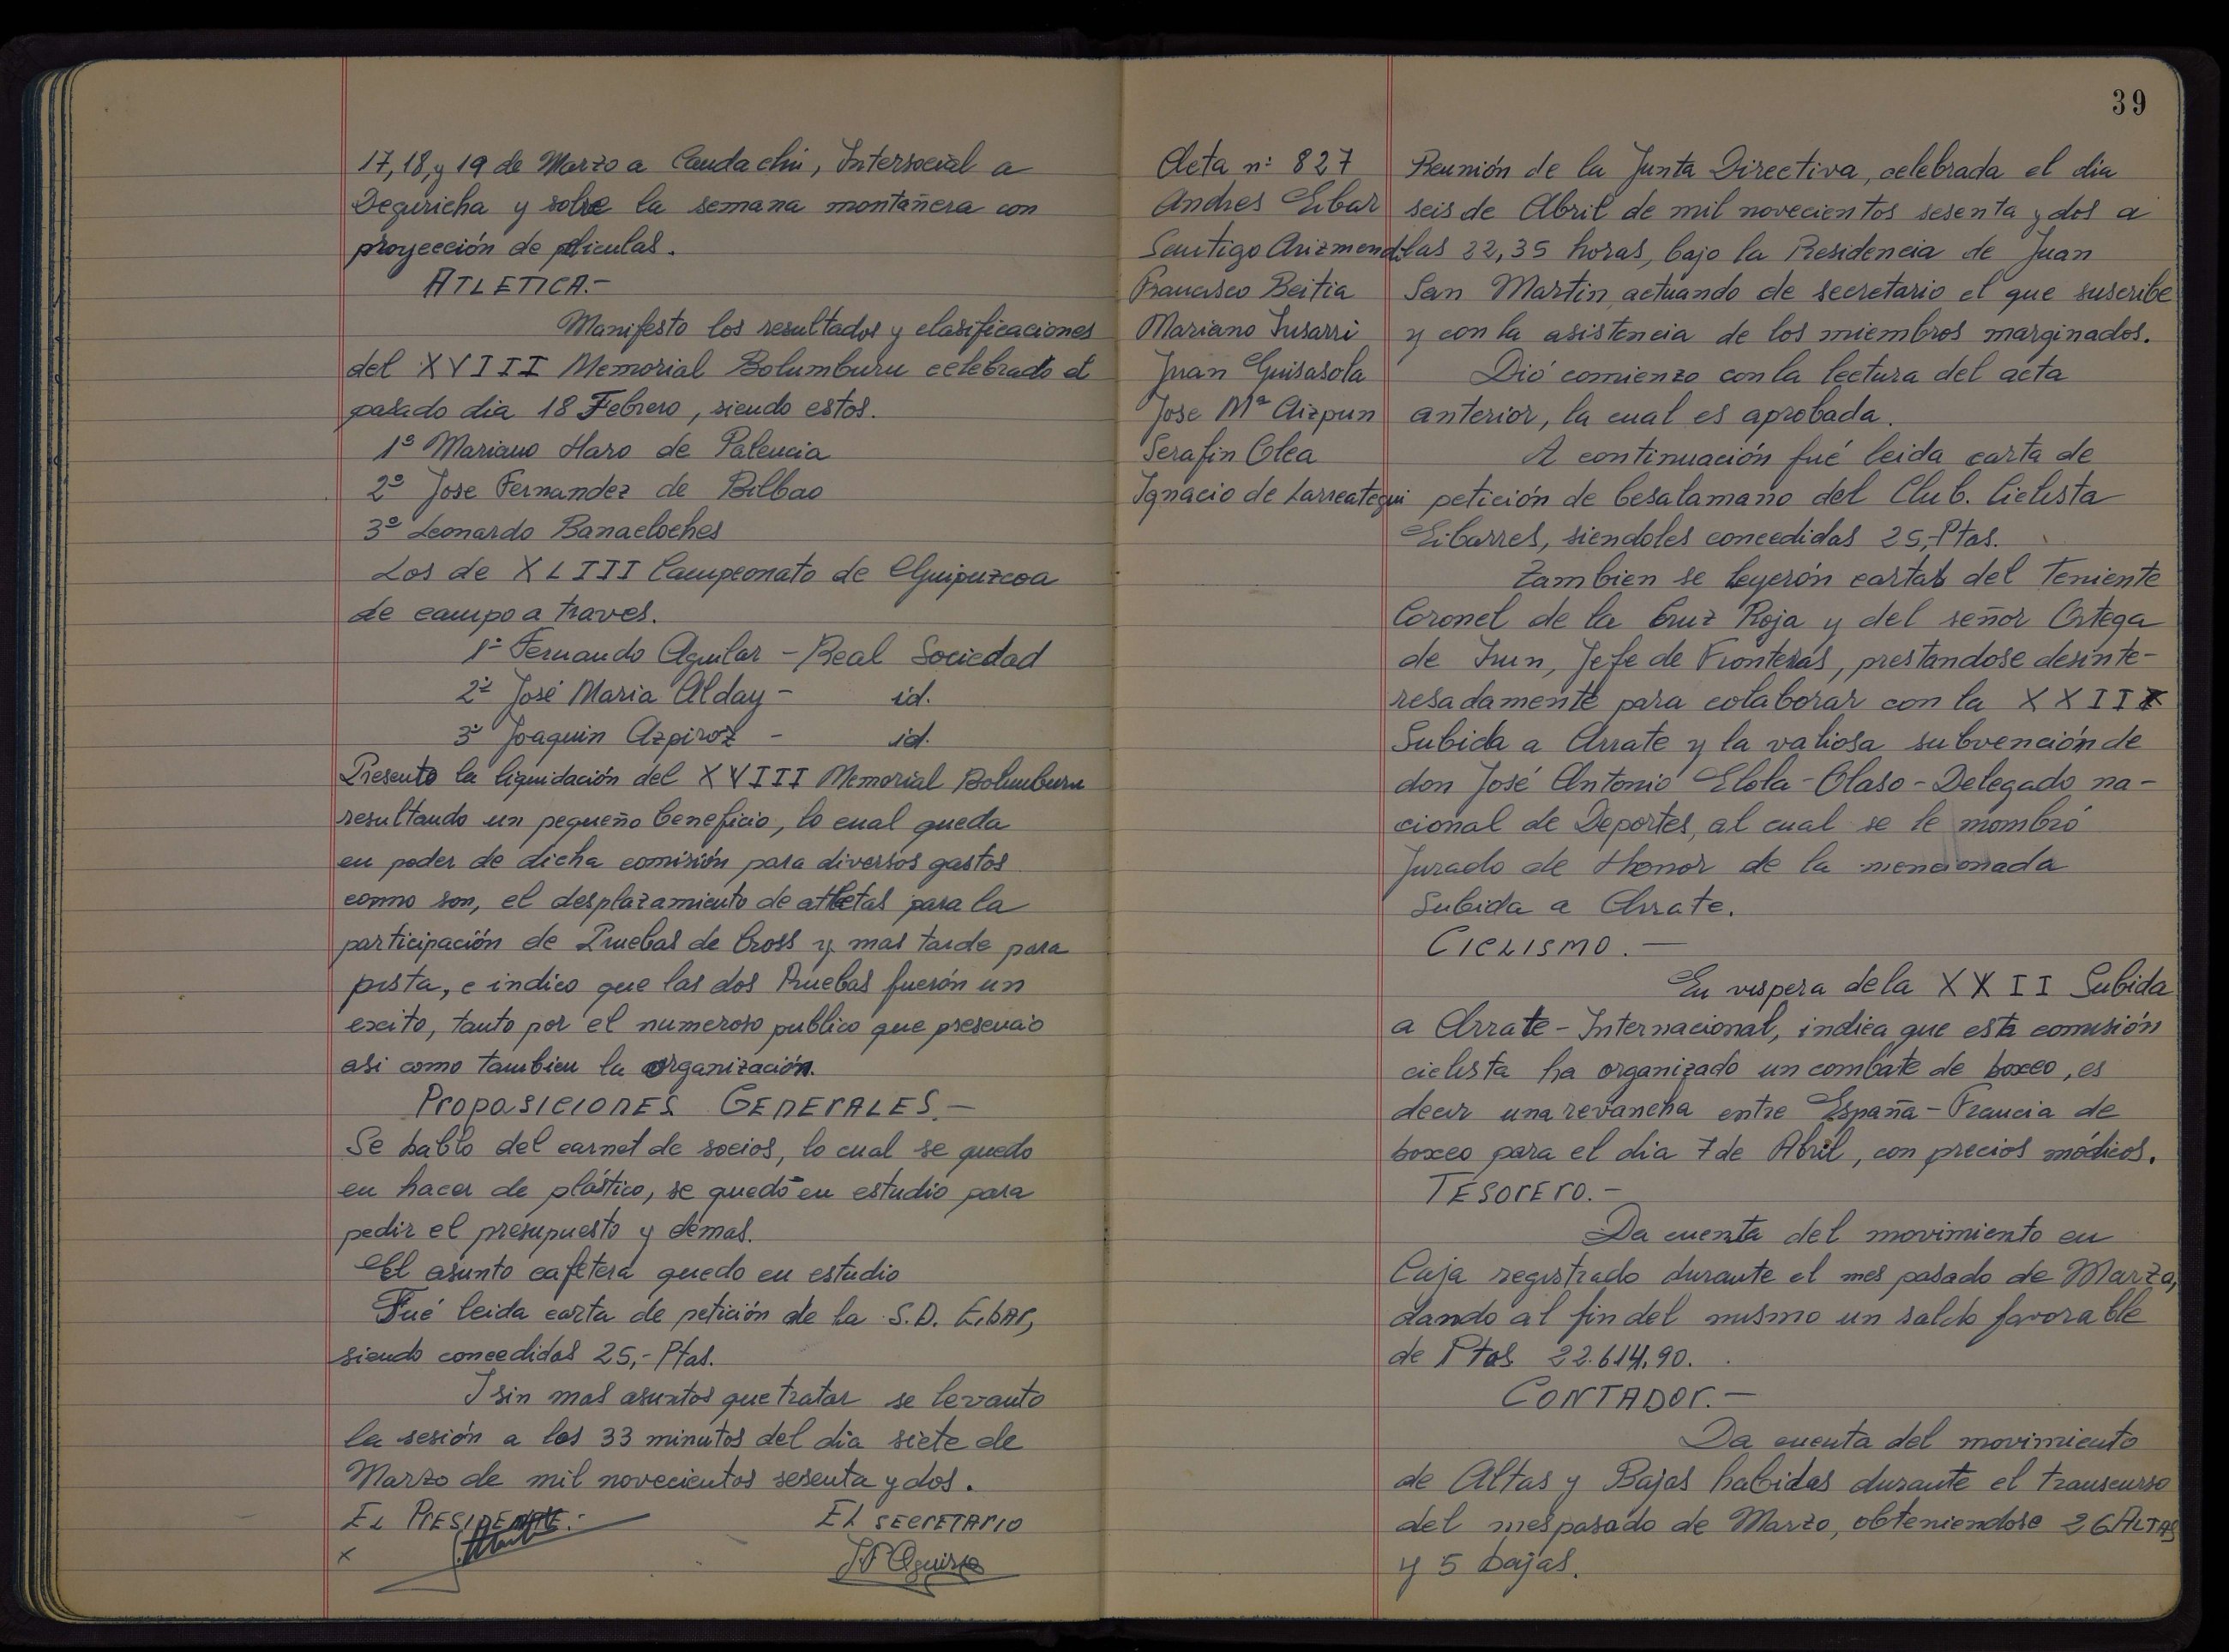 17, 18, y 19 de Marzo a Candachu, Intersocial a
Deguricha y sobre la semana montañera con
proyección de peliculas.
ATLETICA.-
Manifesto los resultados y clasificaciones
del XVIII Memorial Bolumburu celebrado el
pasado dia 18 Febrero, siendo estos.
1º Mariano Haro de Palencia
2º Jose Fernandez de Bilbao
3º Leonardo Banacloches
Los de XLIII Campeonato de Guipuzcoa
de campo a traves.
1º Fernando Aguilar - Real Sociedad
2º José Maria Alday - id.
3º Joaquin Azpiroz - id.
Presento la liquidación del XVIII Memorial Bolumburu
resultando un pequeño beneficio, lo cual queda
en poder de dicha comisión para diversos gastos
como son, el desplazamiento de atletas para la
participación de Pruebas de Cross y mas tarde para
pista, e indico que las dos Pruebas fuerón un
exito, tanto por el numeroso publico que presencio
asi como tambien la organización.
PROPOSICIONES GENERALES.-
Se hablo del carnet de socios, lo cual se quedo
en hacer de plástico, se quedó en estudio para
pedir el presupuesto y demas.
El asunto cafetera quedo en estudio
Fué leida carta de petición de la S.D. Eibar,
siendo concedidas 25,- Ptas.
I sin mas asuntos que tratar se levanto
la sesión a los 33 minutos del dia siete de
Marzo de mil novecientos sesenta y dos.
EL PRESIDENTE.- EL SECRETARIO
39
Acta nº 827
Andres Eibar
Santigo Arizmendi
Francisco Beitia
Mariano Iusarri
Juan Guisasola
Jose Mª Aizpun
Serafin Olea
Ignacio de Larreategui
Reunión de la Junta Directiva, celebrada el dia
seis de Abril de mil novecientos sesenta y dos a
las 22,35 horas, bajo la Presidencia de Juan
San Martin, actuando de secretario el que suscribe
y con la asistencia de los miembros marginados.
Dió comienzo con la lectura del acta
anterior, la cual es aprobada.
A continuación fué leida carta de
petición de besalamano del Club. Ciclista
Eibarres, siendoles concedidas 25,- Ptas.
Tambien se leyerón cartas del Teniente
Coronel de la Cruz Roja y del señor Ortega
de Irun, Jefe de Fronteras, prestandose desinte-
resadamente para colaborar con la XXII
Subida a Arrate y la valiosa subvención de
don José Antonio Elola-Olaso - Delegado na-
cional de Deportes, al cual se le mombró
Jurado de Honor de la mencionada
Subida a Arrate.
CICLISMO.-
En vispera de la XXII Subida
a Arrate - Internacional, indica que esta comisión
ciclista ha organizado un combate de boxeo, es
decir una revancha entre España - Francia de
boxeo para el dia 7 de Abril, con precios módicos.
TESORERO.-
Da cuenta del movimiento en
Caja registrado durante el mes pasado de Marzo,
dando al fin del mismo un saldo favorable
de Ptas 22.614.90.
CONTADOR.-
Da cuenta del movimiento
de Altas y Bajas habidas durante el transcurso
del mes pasado de Marzo, obteniendose 26 ALTAS
y 5 bajas.